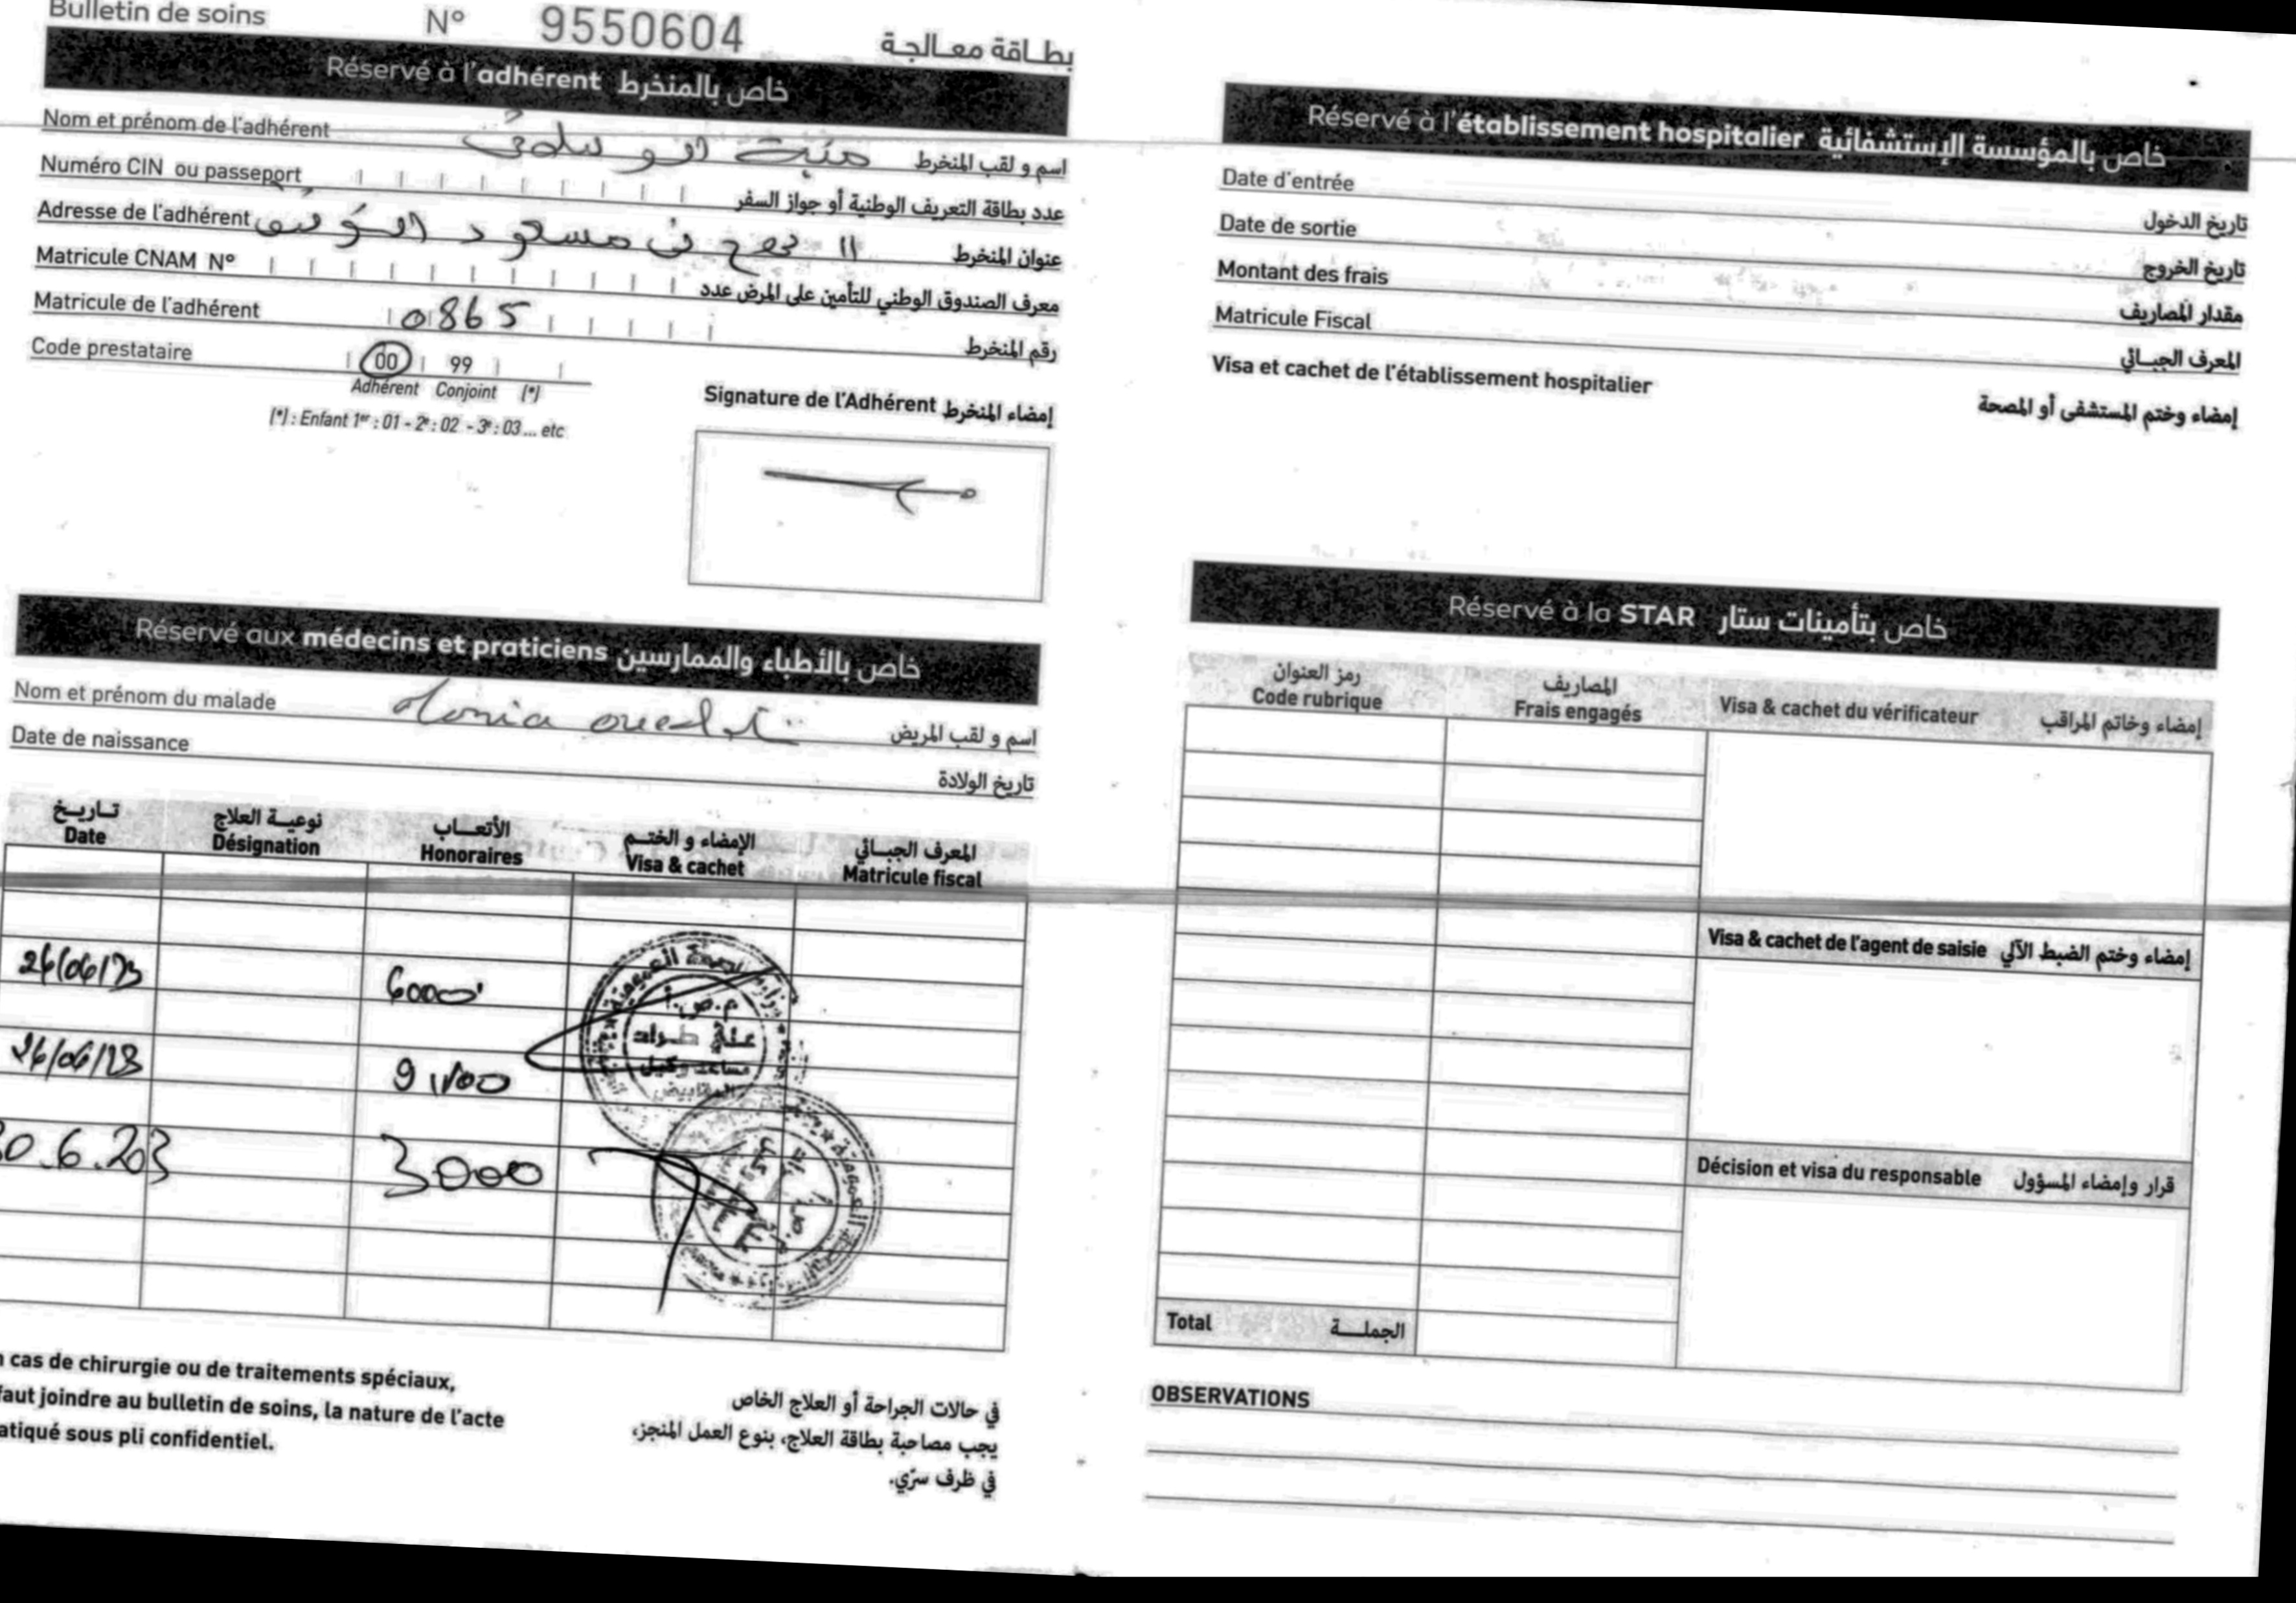 Bulletin de soins N° 9550604 بطاقة معالجة
Réservé à l'adhérent خاص بالمنخرط
Nom et prénom de l'adhérent اسم و لقب المنخرط
Numéro CIN ou passeport عدد بطاقة التعريف الوطنية أو جواز السفر
Adresse de l'adhérent 11 نهج مسعود عنوان المنخرط
Matricule CNAM N° معرف الصندوق الوطني للتأمين على المرض عدد
Matricule de l'adhérent 0865 رقم المنخرط
Code prestataire 00 99
Adhérent Conjoint (*)
(*) : Enfant 1er : 01 - 2e : 02 - 3e : 03 ... etc
Signature de l'Adhérent إمضاء المنخرط
Réservé aux médecins et praticiens خاص بالأطباء والممارسين
Nom et prénom du malade Monia اسم و لقب المريض
Date de naissance تاريخ الولادة
تاريخ نوعية العلاج الأتعاب الإمضاء و الختم المعرف الجبائي
Date Désignation Honoraires Visa & cachet Matricule fiscal
26/06/23 6000
26/06/23
30.6.23 3000
n cas de chirurgie ou de traitements spéciaux,
faut joindre au bulletin de soins, la nature de l'acte
atiqué sous pli confidentiel.
في حالات الجراحة أو العلاج الخاص
يجب مصاحبة بطاقة العلاج، بنوع العمل المنجز،
في ظرف سرّي.
Réservé à l'établissement hospitalier خاص بالمؤسسة الإستشفائية
Date d'entrée تاريخ الدخول
Date de sortie تاريخ الخروج
Montant des frais مقدار المصاريف
Matricule Fiscal المعرف الجبائي
Visa et cachet de l'établissement hospitalier إمضاء وختم المستشفى أو المصحة
Réservé à la STAR خاص بتأمينات ستار
رمز العنوان المصاريف
Code rubrique Frais engagés Visa & cachet du vérificateur إمضاء وخاتم المراقب
Visa & cachet de l'agent de saisie إمضاء وختم الضبط الآلي
Décision et visa du responsable قرار وإمضاء المسؤول
Total الجملة
OBSERVATIONS